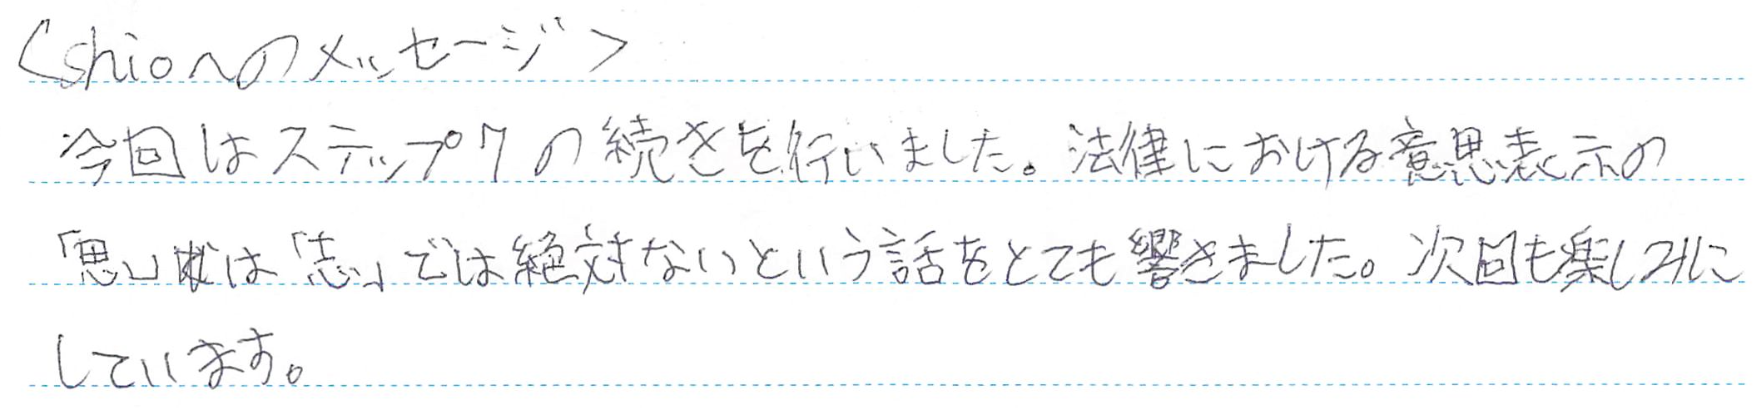 <shioへのメッセージ>
今回はステップ7の続きを行いました。法律における意思表示の
「思」は「志」では絶対ないという話をとても響きました。次回も楽しみに
しています。